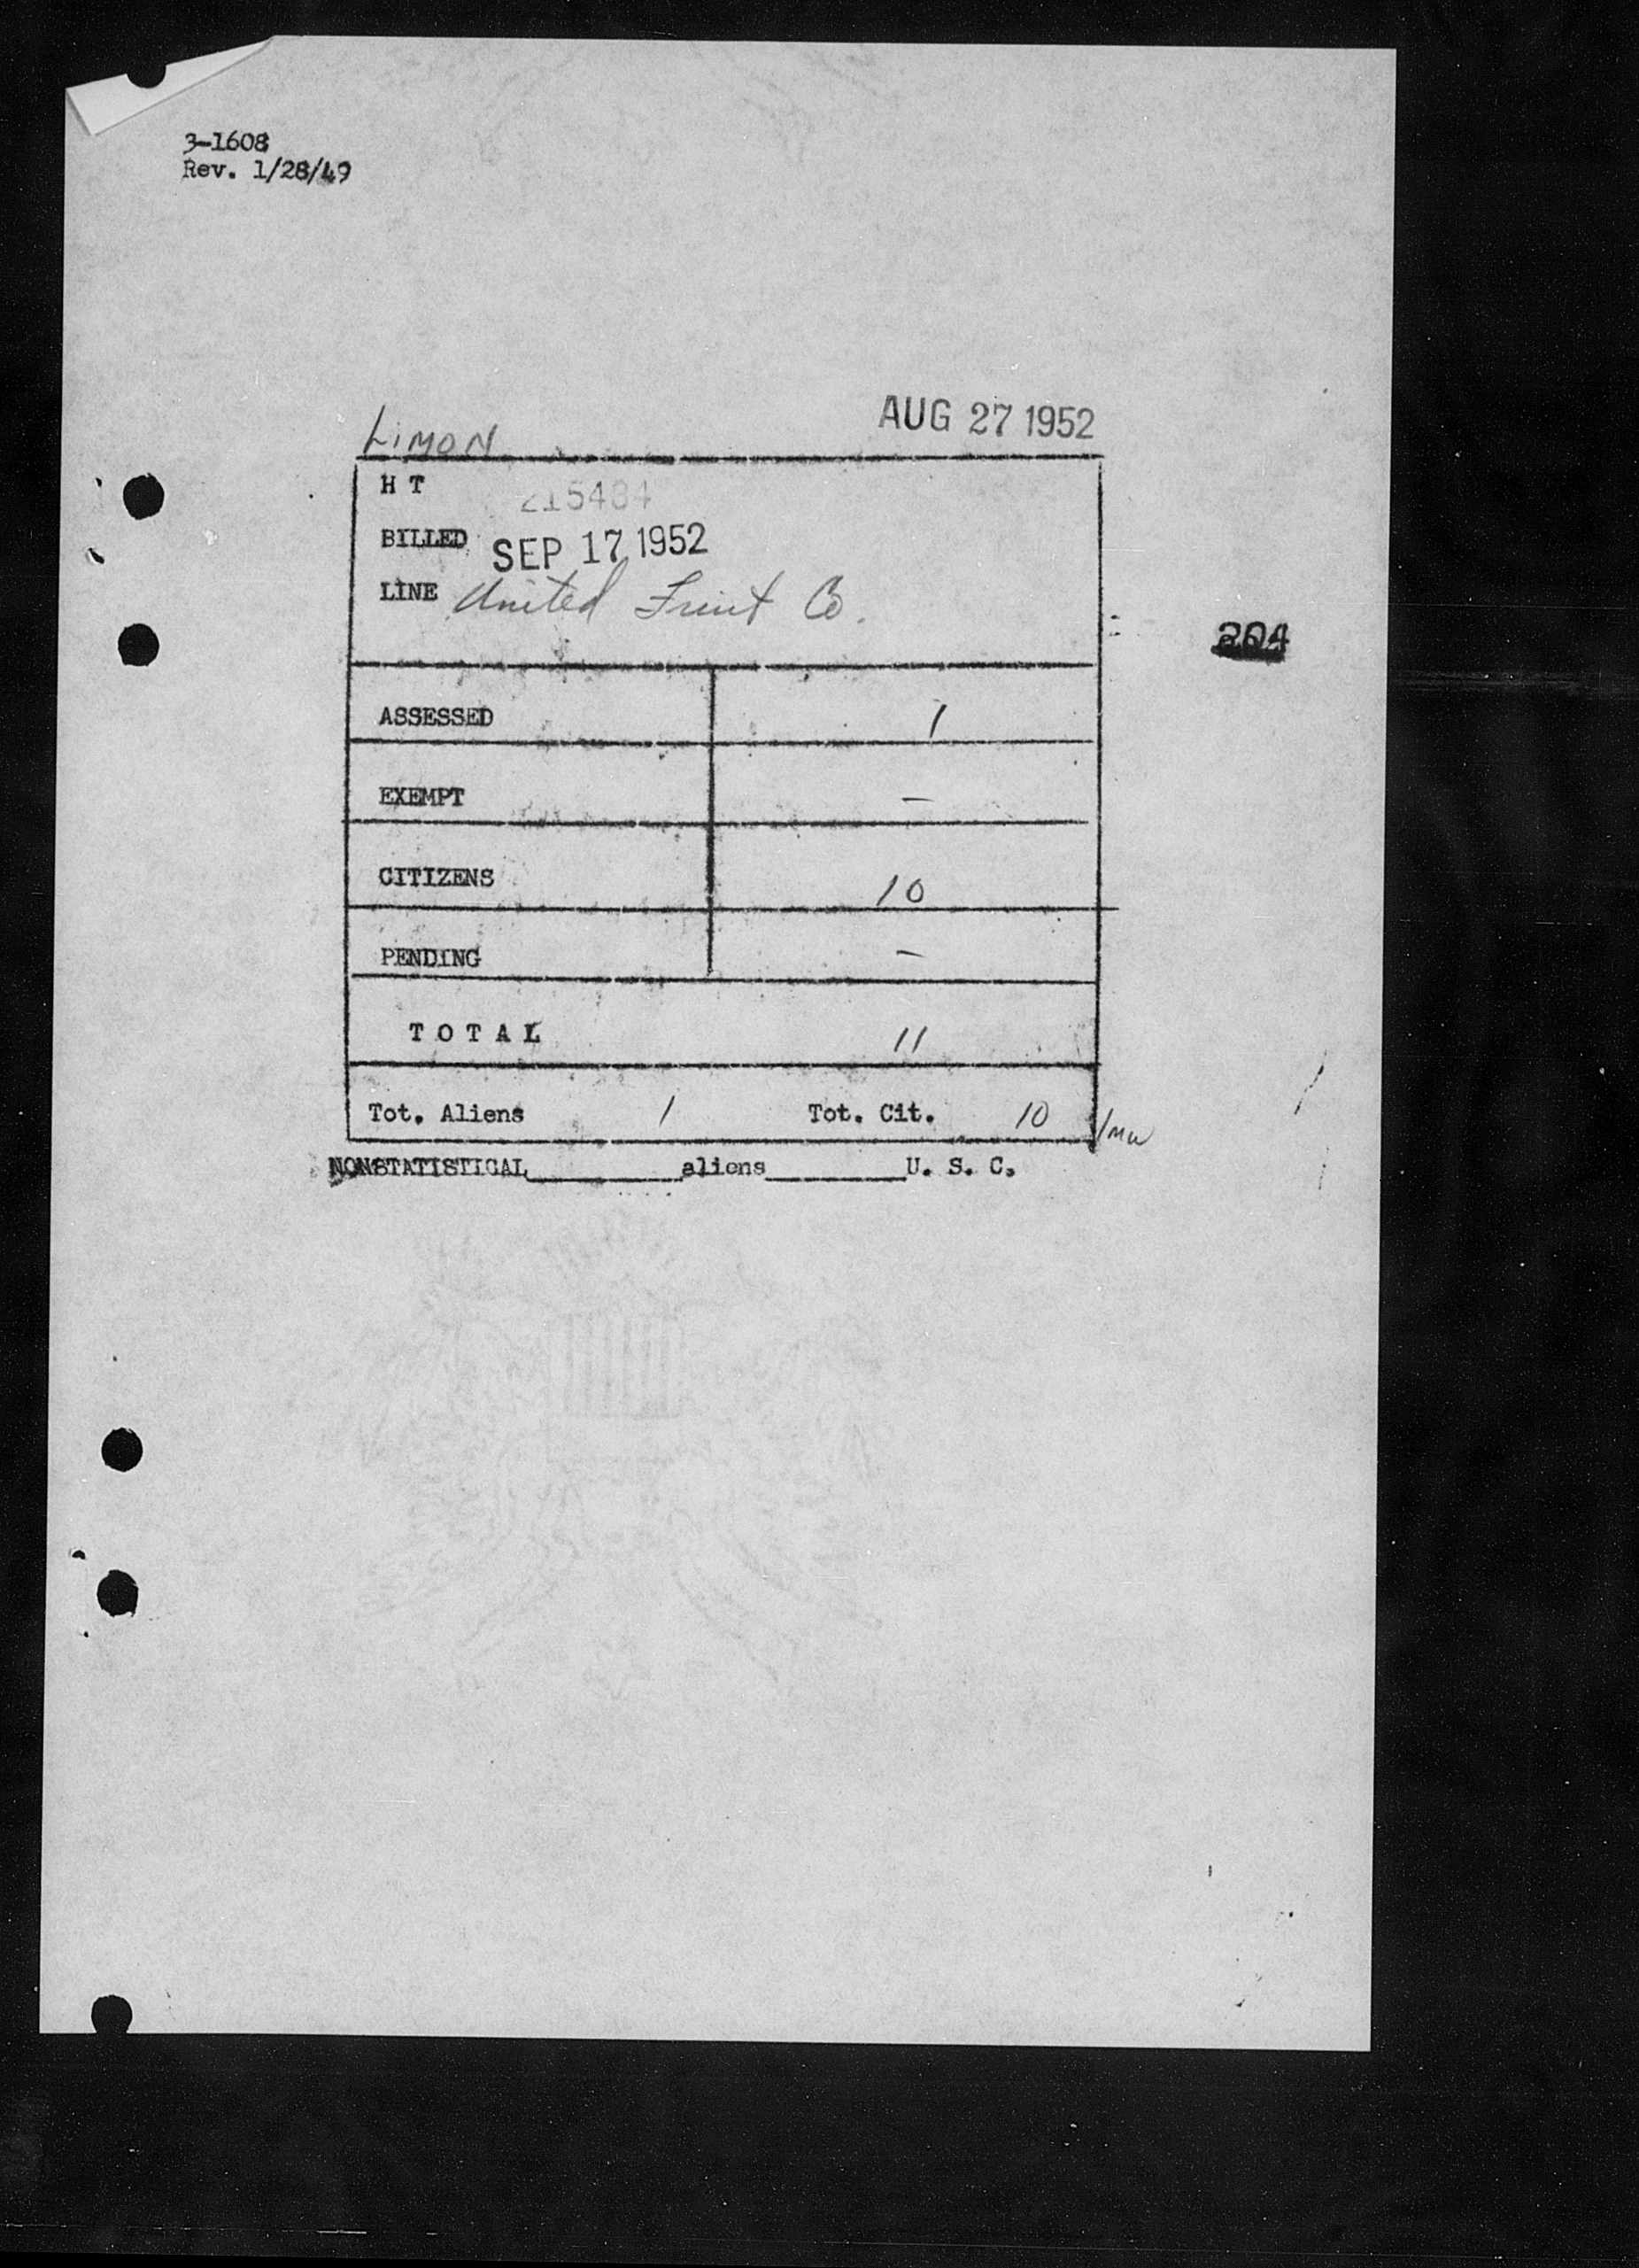 3-1608
Rev. 1/28/49
LIMON AUG 27 1952
H T 215484
BILLED SEP 17 1952
LINE United Fruit Co.
204
ASSESSED 1
EXEMPT –
CITIZENS 10
PENDING –
T O T A L 11
Tot. Aliens 1 Tot. Cit. 10 /mw
NONSTATISTICAL________aliens________U. S. C.